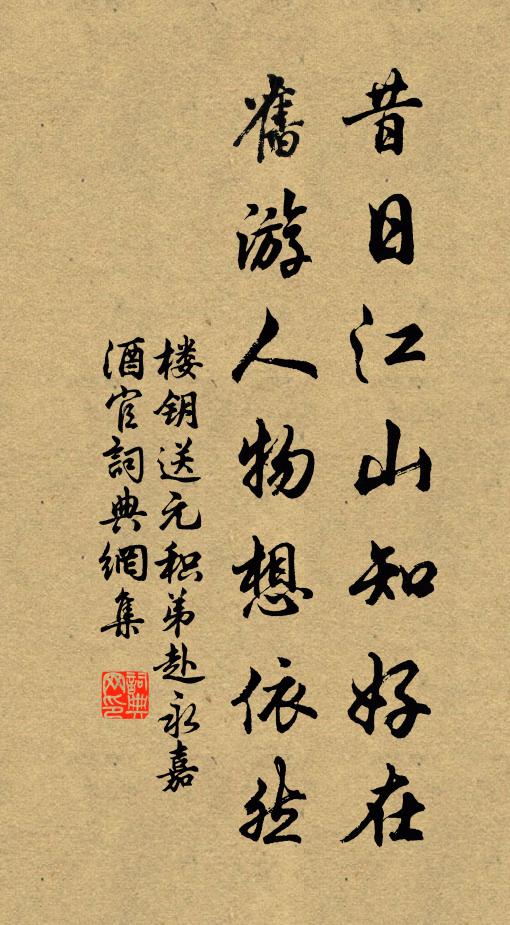 昔日江山知好在
舊游人物想依然
楼钥送元积弟赴永嘉
酒官詞典網集
詞典
网印